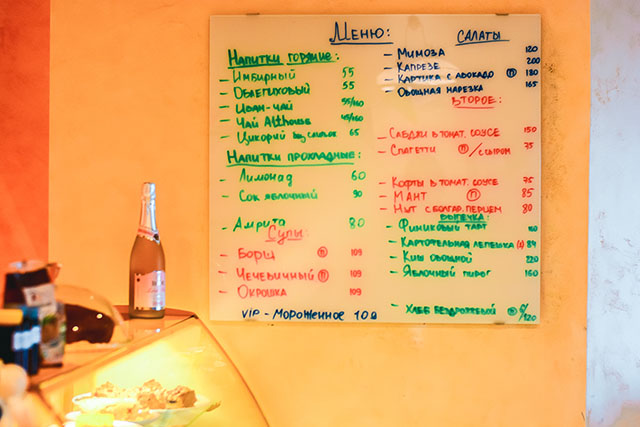 Меню:
Напитки горячие:
- Имбирный 55
- Облепиховый 55
- Иван-чай 55/160
- Чай Althouse 45/160
- Цикорий 65
Напитки прохладные:
- Лимонад 60
- Сок яблочный 90
- Амрита 80
Супы:
- Борщ (п) 109
- Чечевичный (п) 109
- Окрошка 109
VIP - Мороженное 10
Салаты
- Мимоза 120
- Капрезе 200
- с (п) 180
- Овощная нарезка 165
Второе:
- Сабджи в томат. соусе 150
- Спагетти (п) /с сыром 75
- Кофты в томат. соусе 75
- Мант (п) 85
- Нут с болгар. перцем 80
Выпечка:
- Финиковый тарт 110
- Картофельная лепешка 84
- Киш овощной 220
- Яблочный пирог 160
- Хлеб бездрожжевый (п) /120